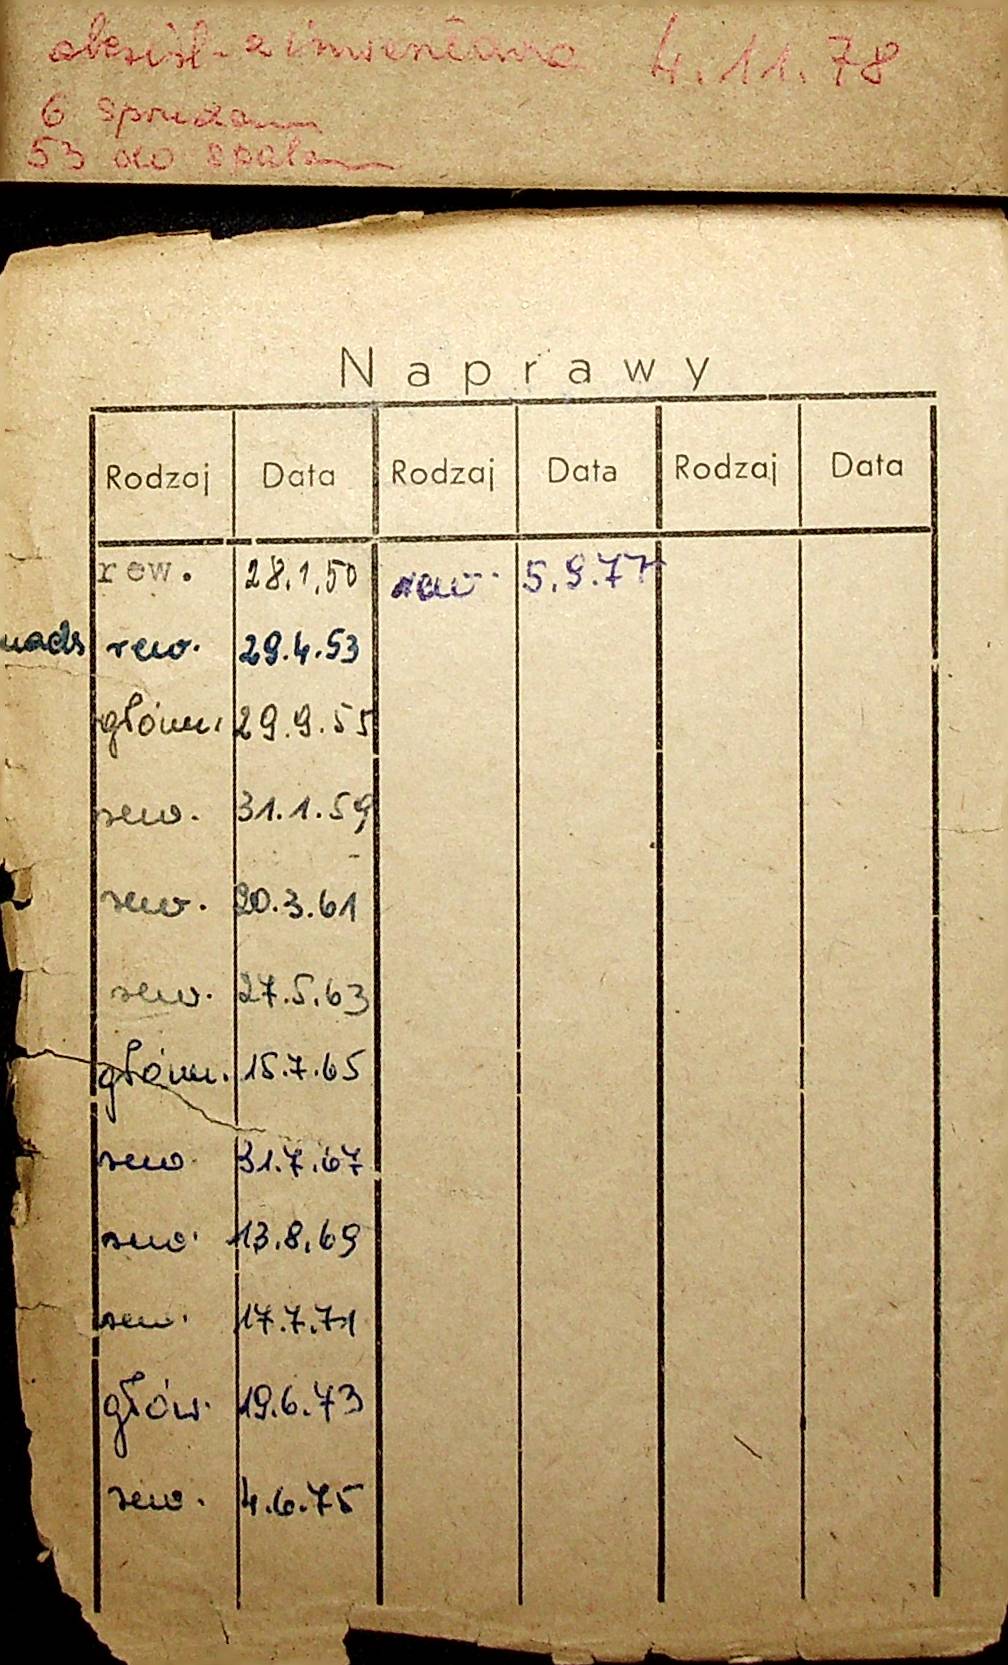 4.11.78
6
53 do
Naprawy
Rodzaj Data Rodzaj Data Rodzaj Data
rew. 28.1.50 rew. 5.9.77
nads rew. 29.4.53
główn. 29.9.55
rew. 31.1.59
rew. 20.3.61
rew. 27.5.63
główn. 15.7.65
rew. 31.7.67
rew. 13.8.69
rew. 17.7.71
głów. 19.6.73
rew. 4.6.75